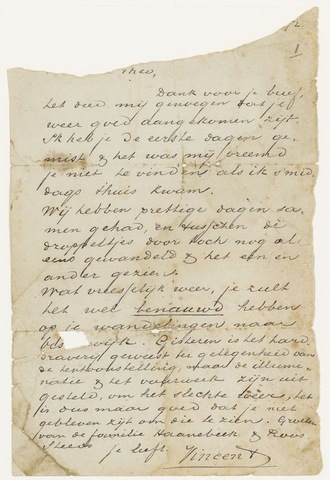 12
1
Theo,
Dank voor je brief,
het deed mij genoegen dat je
weer goed aangekomen zijt.
Ik heb je de eerste dagen ge-
mist & het was mij vreemd
je niet te vinden als ik smid
dags thuis kwam.
Wij hebben prettige dagen sa-
men gehad, en tusschen de
droppeltjes door toch nog al
eens gewandeld & het een en
ander gezien.
Wat vreesselijk weer, je zult
het wel benauwd hebben
op je wandelingen naar
wijk. Gisteren is het hard
draverij geweest ter gelegenheid van
de tentoonstelling, maar de illumi-
natie & het vuurwerk zijn uit
gesteld, om het slechte weer, het
is dus maar goed dat je niet
gebleven zijt om die te zien. Groeten
van de familie Haanebeek & Roos.
Steeds
je liefh. Vincent